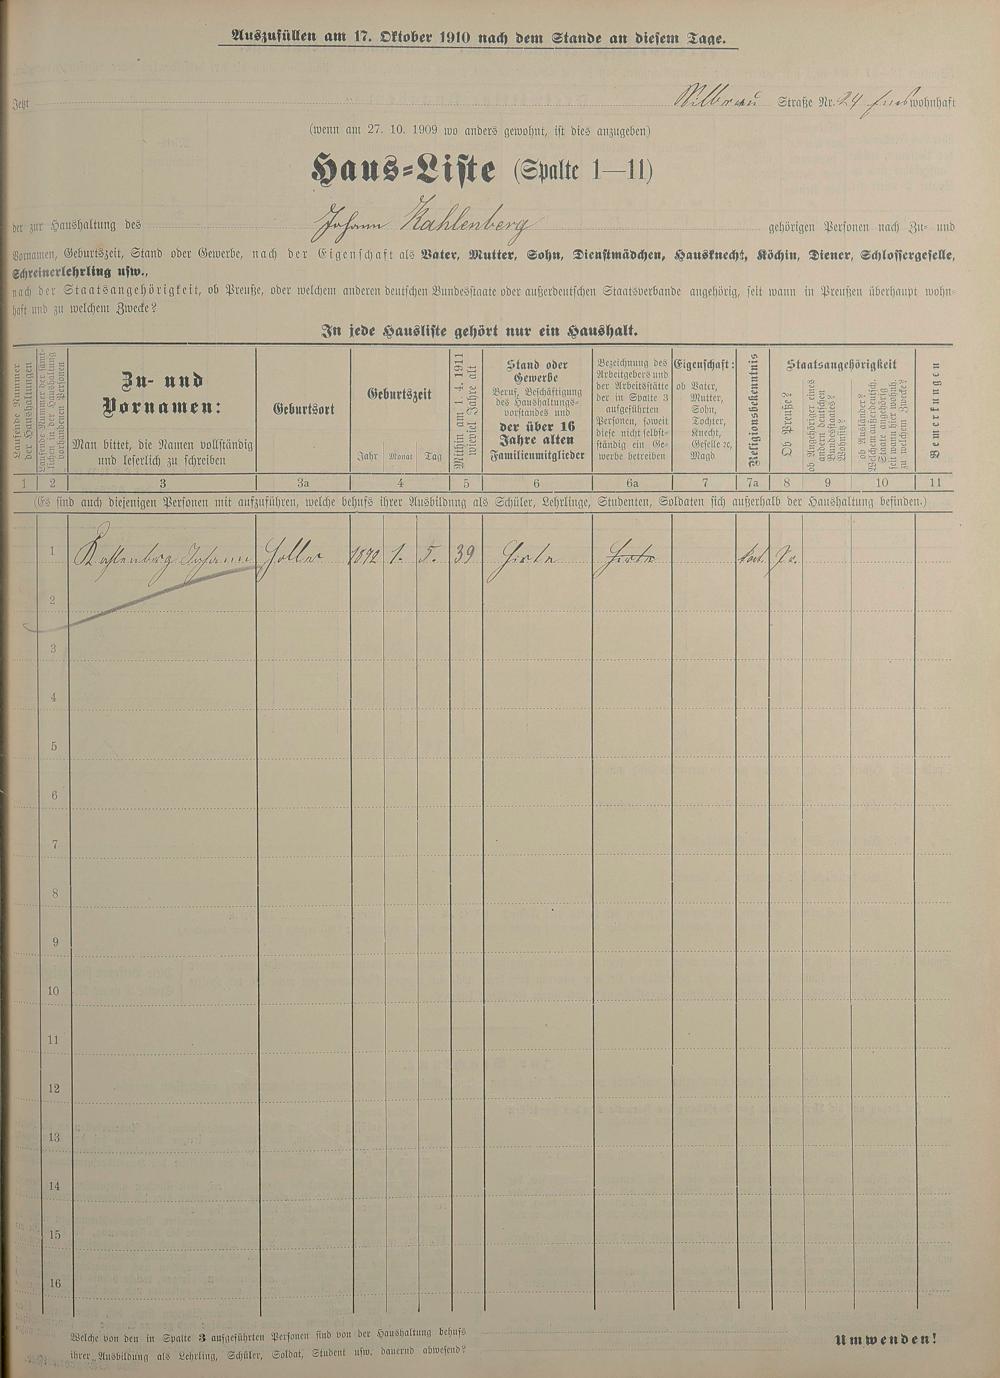 Auszufüllen am 17. Oktober 1910 nach dem Stande an diesem Tage.
Jetzt Straße Nr. 24 wohnhaft
(wenn am 27. 10. 1909 wo anders gewohnt, ist dies anzugeben)
Haus-Liste (Spalte 1—11)
der zur Haushaltung des Johann Kahlenberg gehörigen Personen nach Zu- und
Vornamen, Geburtszeit, Stand oder Gewerbe, nach der Eigenschaft als Vater, Mutter, Sohn, Dienstmädchen, Hausknecht, Köchin, Diener, Schlossergeselle,
Schreinerlehrling usw.,
nach der Staatsangehörigkeit, ob Preuße, oder welchem anderen deutschen Bundesstaate oder außerdeutschen Staatsverbande angehörig, seit wann in Preußen überhaupt wohn-
haft und zu welchem Zwecke?
In jede Hausliste gehört nur ein Haushalt.
Laufende Nummer
der Haushaltungen
Laufende Nummer der sämt-
lichen in der Haushaltung
vorhandenen Personen
Zu- und
Vornamen:
Man bittet, die Namen vollständig
und leserlich zu schreiben
Geburtsort
Geburtszeit
Jahr Monat Tag
Mithin am 1. 4. 1911
wieviel Jahre alt
Stand oder
Gewerbe
Beruf, Beschäftigung
des Haushaltungs-
vorstandes und
der über 16
Jahre alten
Familienmitglieder
Bezeichnung des
Arbeitgebers und
der Arbeitsstätte
der in Spalte 3
aufgeführten
Personen, soweit
diese nicht selbst-
ständig ein Ge-
werbe betreiben
Eigenschaft:
ob Vater,
Mutter,
Sohn,
Tochter,
Knecht,
Geselle ꝛc,
Magd
Religionsbekenntnis
Staatsangehörigkeit
Ob Preuße?
ob Angehöriger eines
andern deutschen
Bundesstaates?
Wohnsitz?
ob Ausländer?
Welchem außerdeutsch.
Staate angehörig
seit wann hier wohnh.
zu welchem Zwecke?
Bemerkungen
1 2 3 3a 4 5 6 6a 7 7a 8 9 10 11
(Es sind auch diejenigen Personen mit aufzuführen, welche behufs ihrer Ausbildung als Schüler, Lehrlinge, Studenten, Soldaten sich außerhalb der Haushaltung befinden.)
1 Kahlenberg Johann Holler 1872 1. 5. 39 Hirte Hirte kat. Pr.
2
3
4
5
6
7
8
9
10
11
12
13
14
15
16
Welche von den in Spalte 3 aufgeführten Personen sind von der Haushaltung behufs
ihrer Ausbildung als Lehrling, Schüler, Soldat, Student usw. dauernd abwesend?
Umwenden!